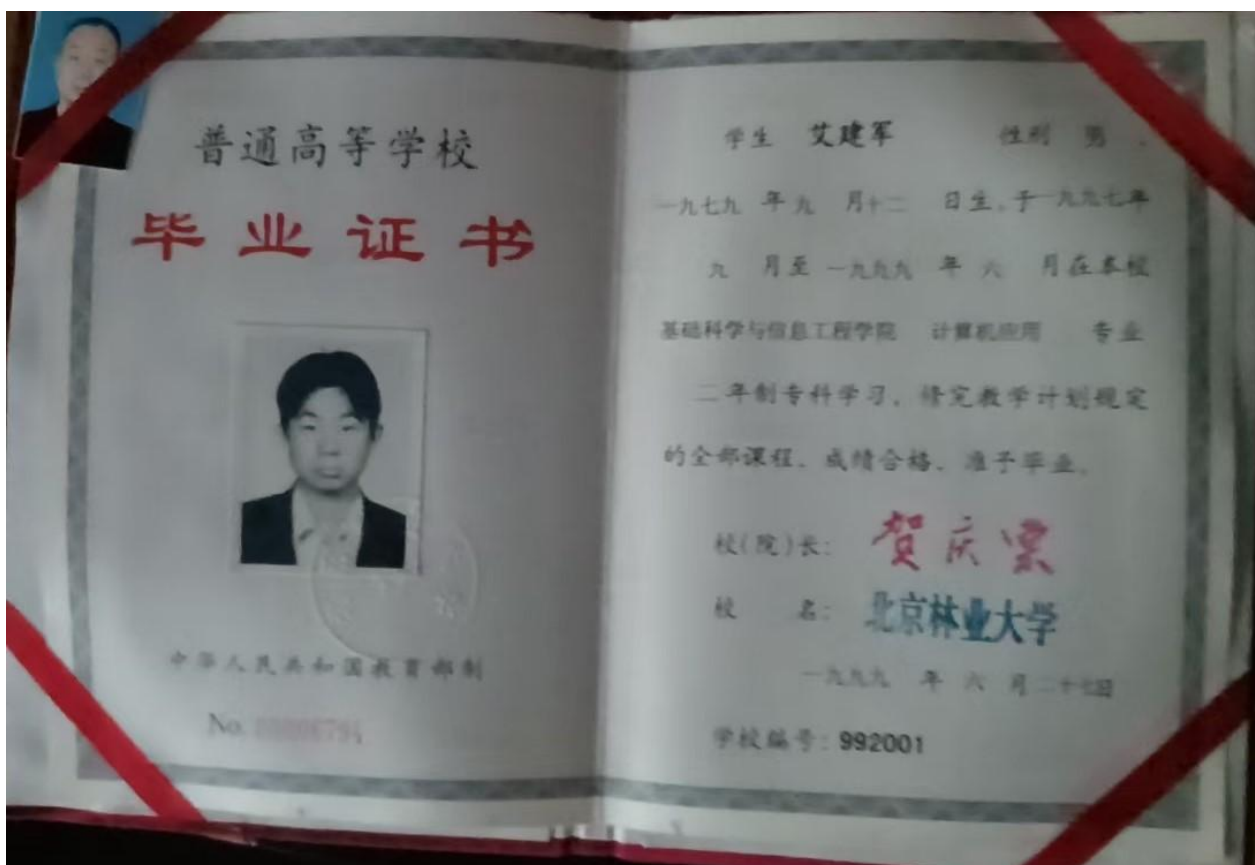 普通高等学校
毕业证书
中华人民共和国教育部制
No.
学生 艾建军 性别 男 .
一九七九 年 九 月十二 日生,于一九九七年
九 月至 一九九九 年 六 月在本校
基础科学与信息工程学院 计算机应用 专业
二年制专科学习,修完教学计划规定
的全部课程,成绩合格,准予毕业。
校(院)长: 贺庆棠
校 名: 北京林业大学
一九九九 年 六 月二十七日
学校编号: 992001